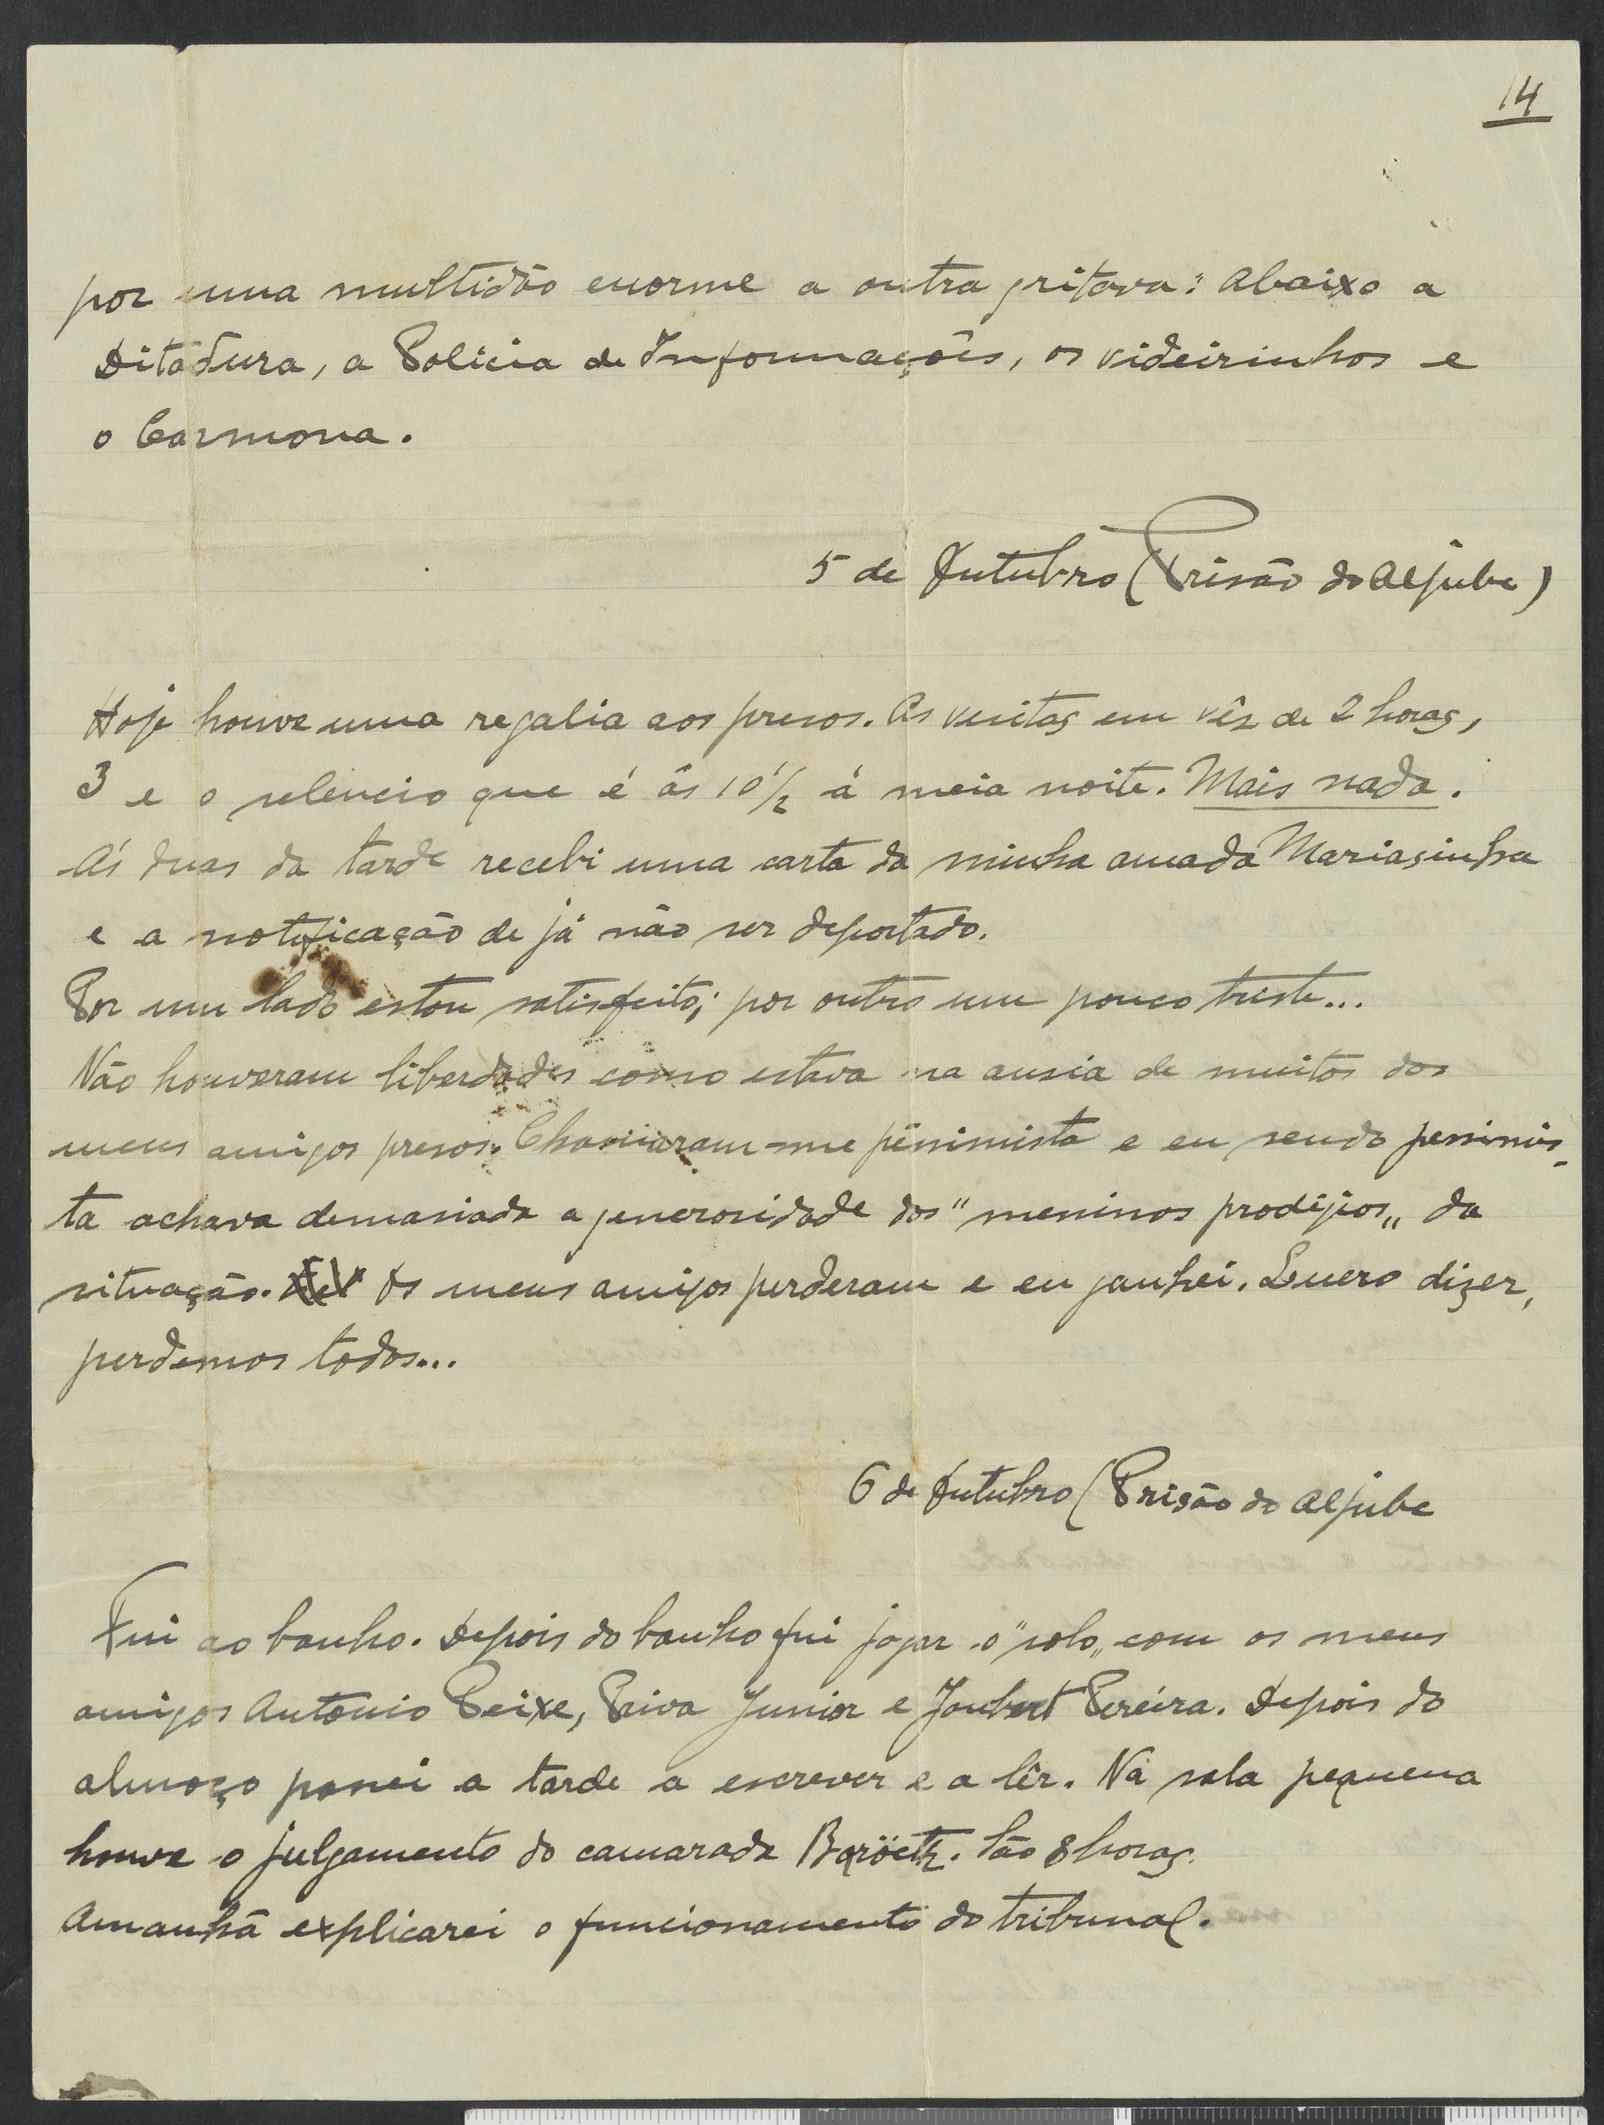 14
por uma multidão enorme a outra gritava: Abaixo a
Ditadura, a Policia de Informações, os videirinhos e
o Carmona.
5 de Outubro (Prisão do Aljube)
Hoje houve uma regalia aos presos. As vesitas em vês de 2 horas,
3 e o selencio que é ás 10 1/2 á meia noite. Mais nada.
Ás duas da tarde recebi uma carta da minha amada Mariasinha
e a notificação de já não ser deportado.
Por um lado estou satisfeito; por outro um pouco triste...
Não houveram liberdades como estava na ansia de muitos dos
meus amigos presos. Chamaram-me péssimista e eu sendo pessimis-
ta achava demasiada a generosidade dos "meninos prodigios" da
situação. Os meus amigos perderam e eu ganhei. Quero dizer,
perdemos todos...
6 de Outubro (Prisão do Aljube
Fui ao banho. Depois do banho fui jogar o "solo" com os meus
amigos Antonio Peixe, Paiva Junior e Joubert Pereira. Depois do
almoço passei a tarde a escrever e a lêr. Na sala pequena
houve o julgamento do camarada. São 8 horas.
Amanhã explicarei o funcionamento do tribunal.